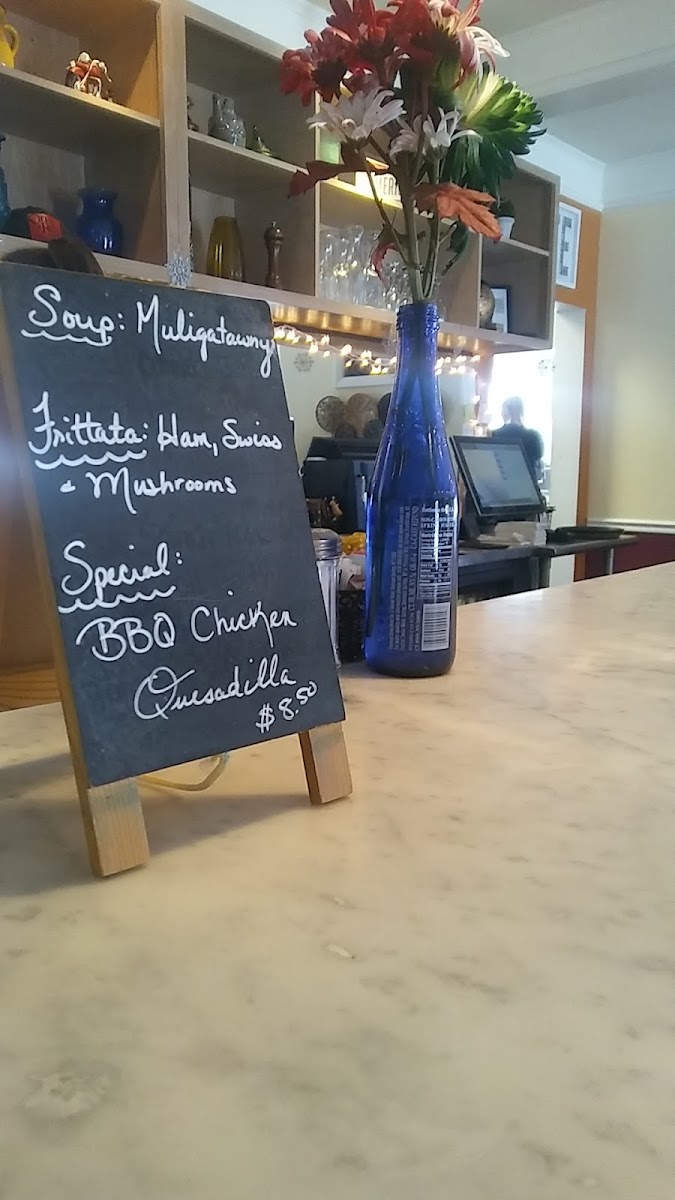 Soup: Muligatawny
Frittata: Ham, Swiss
& Mushrooms
Special:
BBQ Chicken
Quesadilla
$8.50
E